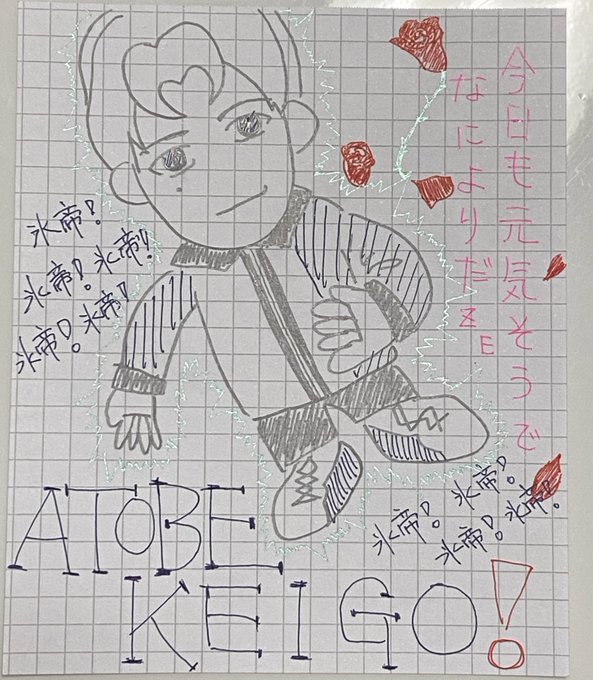 今日も元気そうで
なによりだZE
氷帝!
氷帝!氷帝!
氷帝!氷帝!
氷帝!氷帝!
氷帝!氷帝!
ATOBE
KEIGO!